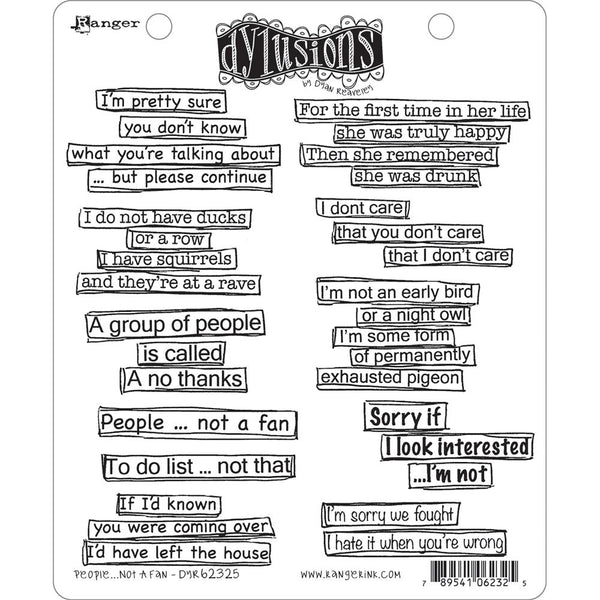 Ranger
dylusions
by Dyan Reaveley
I'm pretty sure
you don't know
what you're talking about
... but please continue
I do not have ducks
or a row
I have squirrels
and they're at a rave
A group of people
is called
A no thanks
People ... not a fan
To do list ... not that
If I'd known
you were coming over
I'd have left the house
For the first time in her life
she was truly happy
Then she remembered
she was drunk
I dont care
that you don't care
that I don't care
I'm not an early bird
or a night owl
I'm some form
of permanently
exhausted pigeon
Sorry if
I look interested
...I'm not
I'm sorry we fought
I hate it when you're wrong
People...Not a Fan - DYR62325
www.rangerink.com
7 89541 06232 5